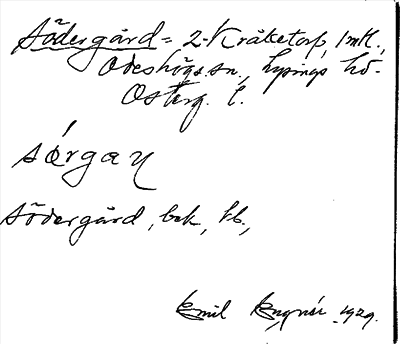 Södergård = 2 - Kråketorp, 1 mtl.,
Ödeshögs sn., Lysings hd.
Österg. l.
sǿrgaɳ
Södergård, bek, kb.,
Emil 1929.